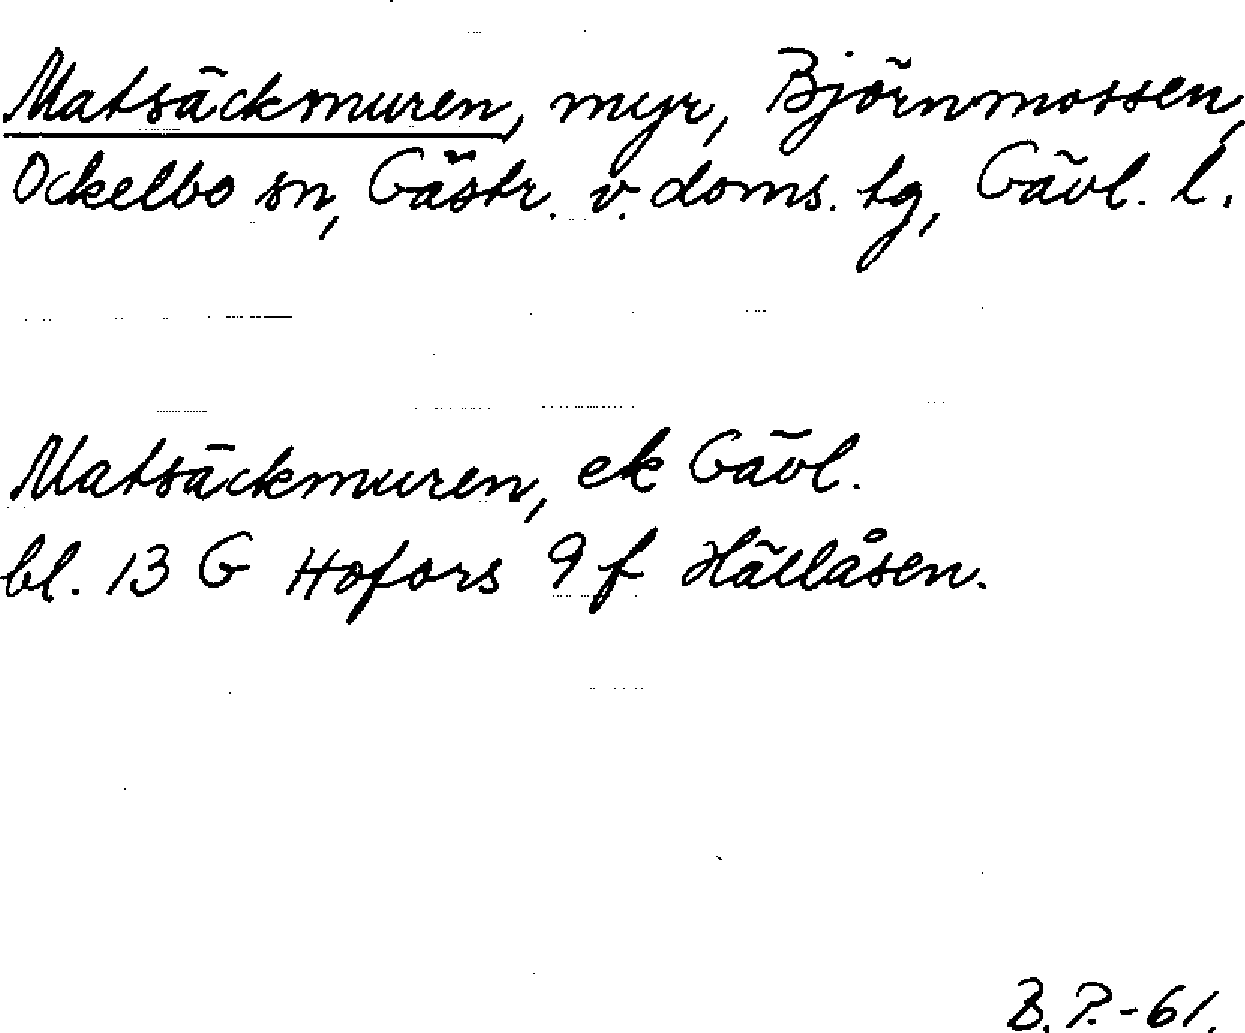 Matsäckmuren, myr, Björnmossen,
Ockelbo sn, Gästr. v. doms. tg, Gävl. l.
Matsäckmuren, ek Gävl.
bl. 13 G Hofors 9 f Hällåsen.
B. P.-61.